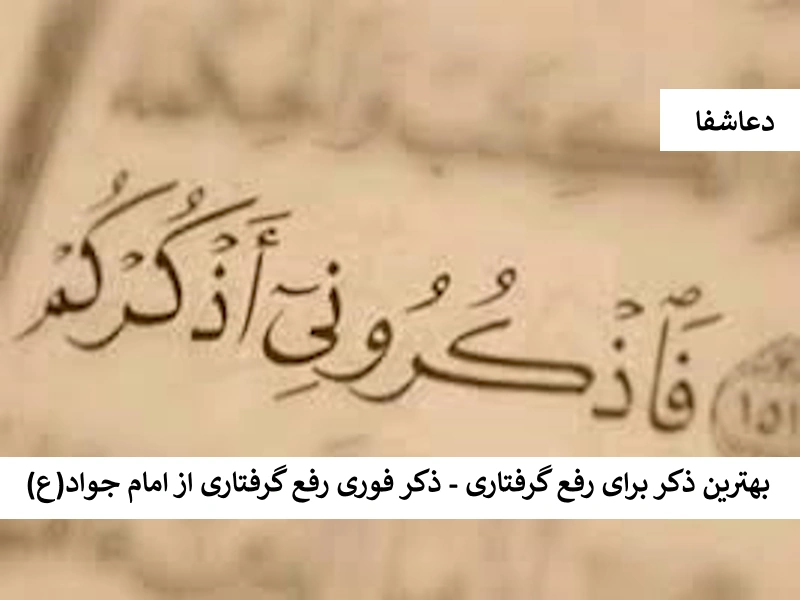 دعاشفا
١٥١ فَٱذْكُرُونِيٓ أَذْكُرْكُمْ
بهترین ذکر برای رفع گرفتاری - ذکر فوری رفع گرفتاری از امام جواد(ع)